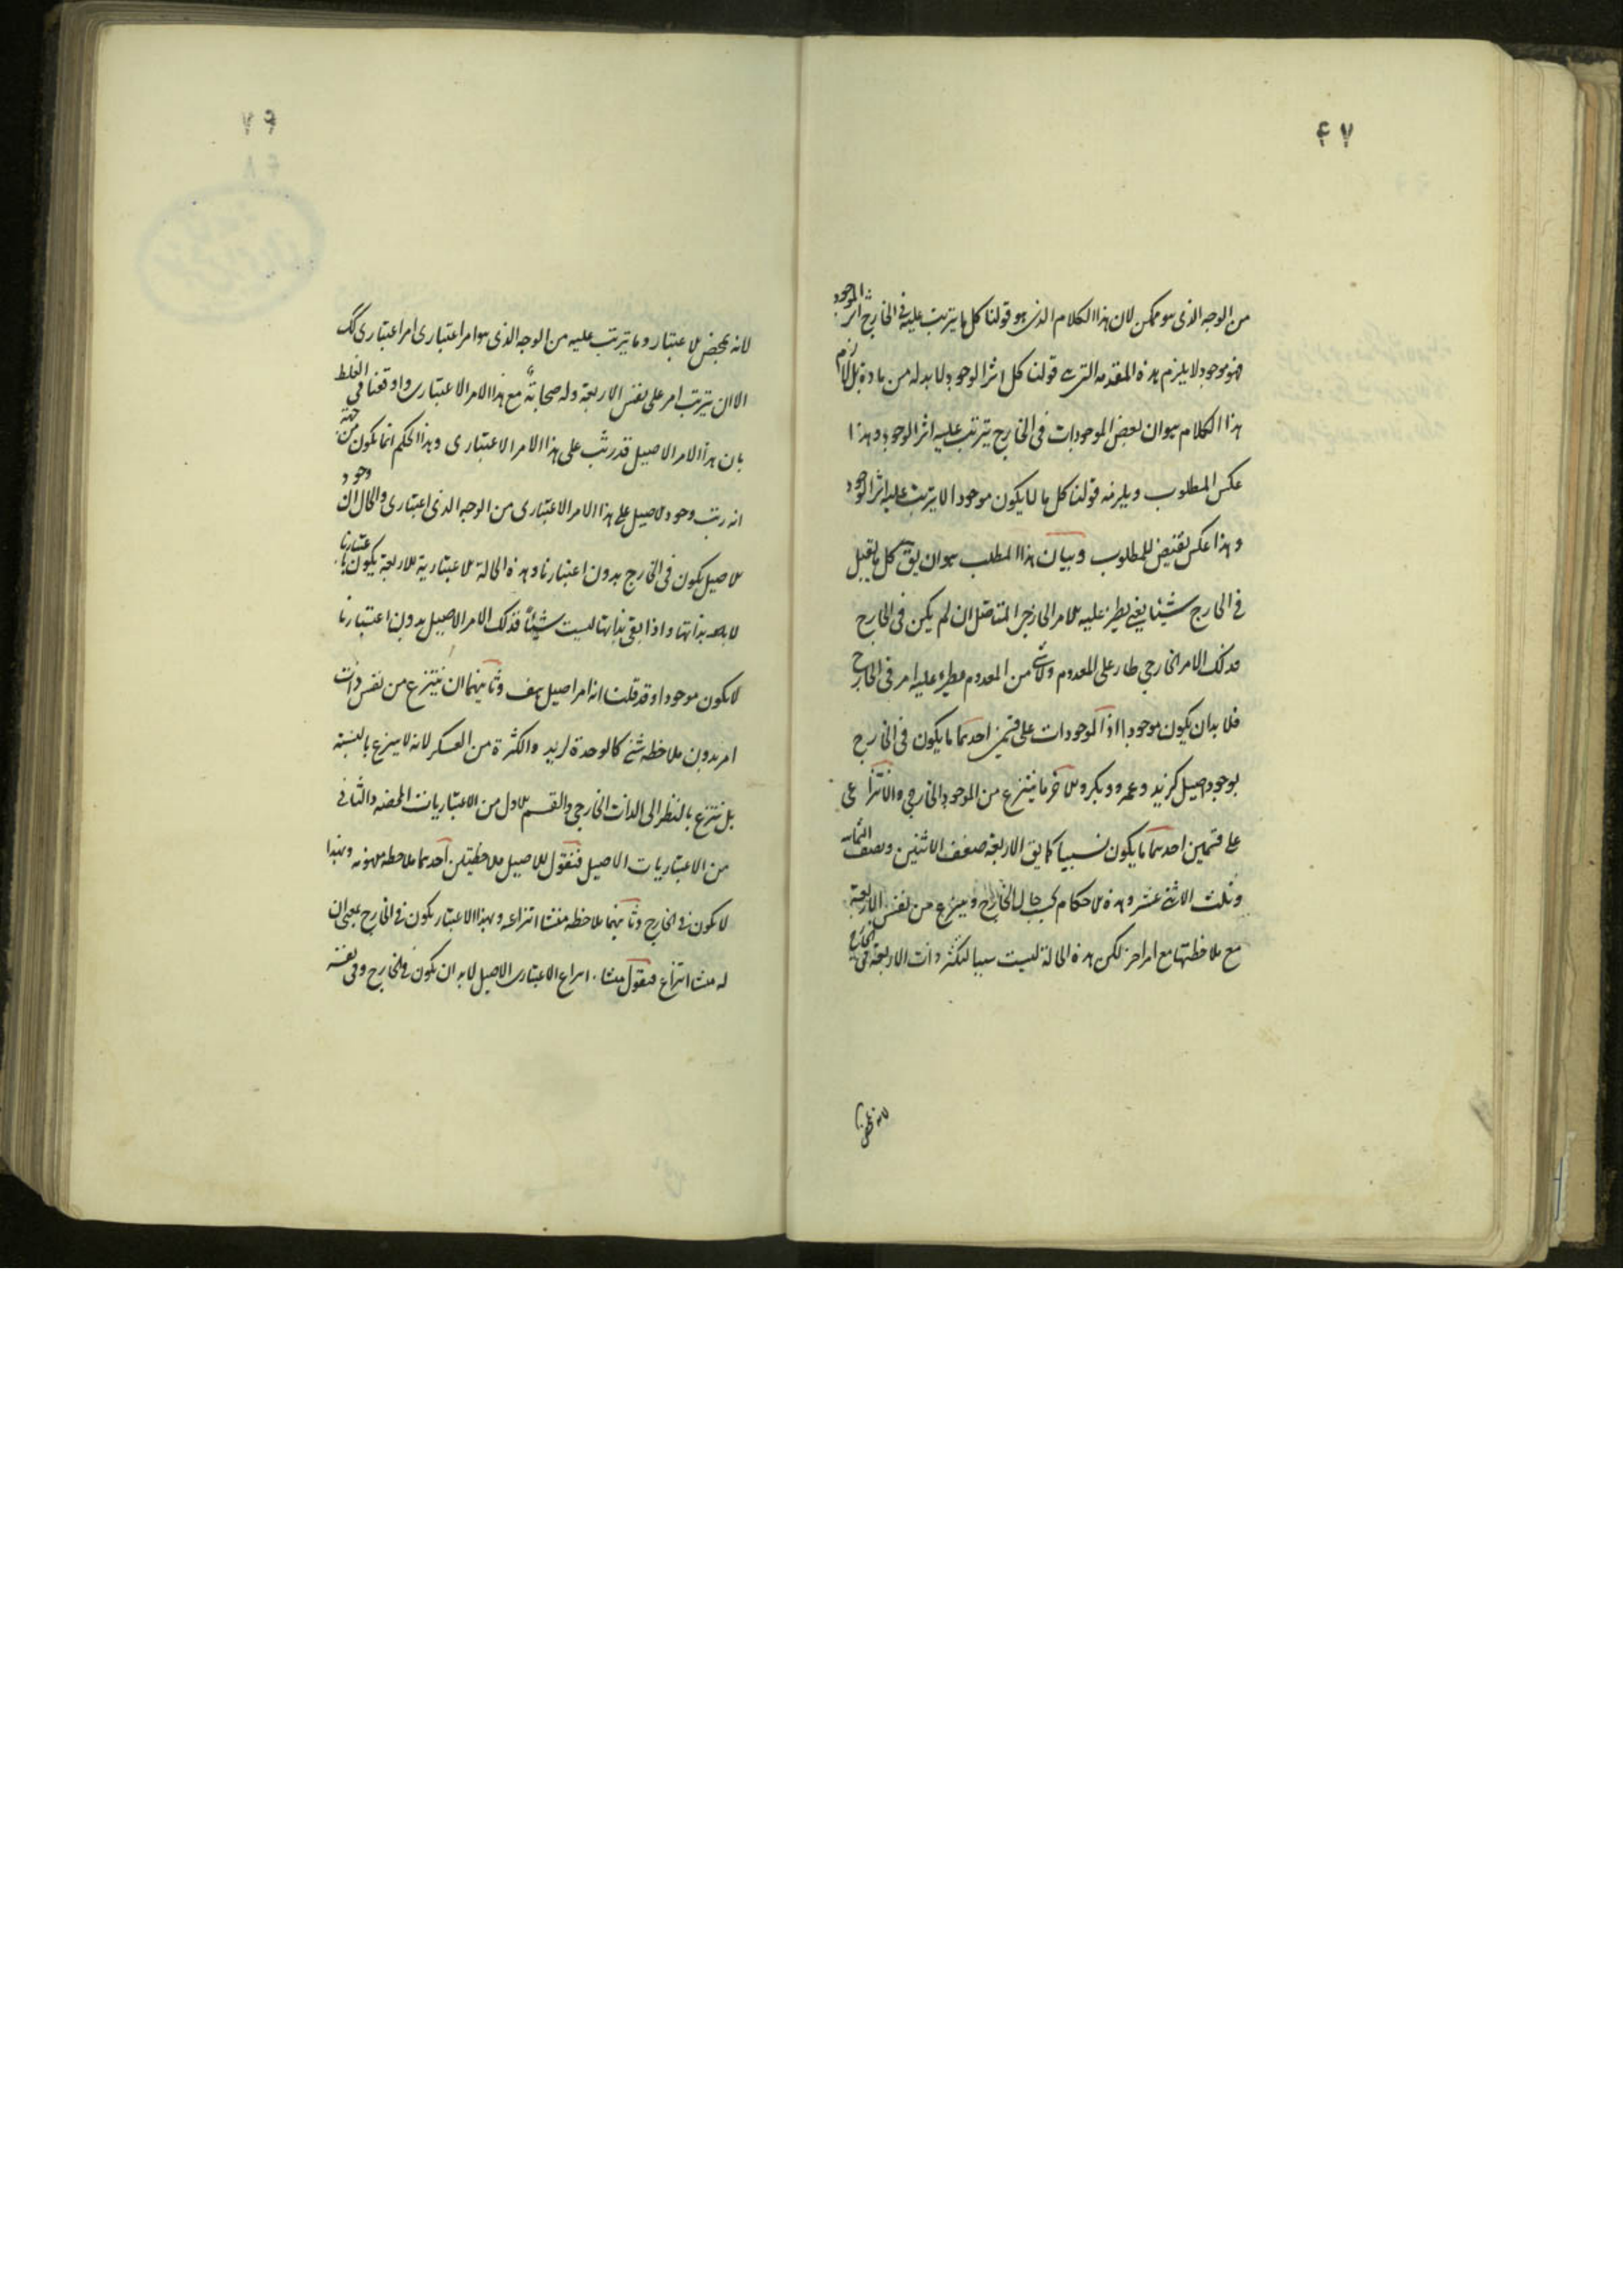 ۴۷
من الوجه الذی هو ممکن لان هذا الکلام الذی هو قولنا کل ما یترتب علیه فی الخارج اثر الموجود
فهو موجود لا یلزم هذه المقدمه التی قولنا کل اثر الوجود لا بد له من مادة بل لازم
هذا الکلام هو ان بعض الموجودات فی الخارج یترتب علیه اثر الوجود وهذا
عکس المطلوب ویلزمه قولنا کل ما لا یکون موجودا لا یترتب علیه اثر الوجود
وهذا عکس نقیض للمطلوب وبیان هذا المطلب هو ان یق کل ما یقبل
فی الخارج شیئا یعنی یطرء علیه الامر الخارجی المتاصل ان لم یکن فی الخارج
فذلک الامر الخارجی طار علی المعدوم ولاشئ من المعدوم یطرء علیه امر فی الخارج
فلا بد ان یکون موجودا اذا الموجودات علی قسمین احدهما ما یکون فی الخارج
بوجود اصیل کزید وعمرو وبکر والاخر ما ینتزع من الموجود الخارجی والانتزاعی
علی قسمین احدهما ما یکون نسبیا کما یق الاربعة ضعف الاثنین ونصف الثمانیه
وثلث الاثنی عشر وهذه الاحکام بحسب الخارج وینتزع من نفس الاربعة
مع ملاحظتها مع امر اخر لکن هذه الحالة لیست سببا لتکثر ذات الاربعة فی الخارج
لانه بمحض
۷۹
لانه بمحض الاعتبار وما یترتب علیه من الوجه الذی هو امر اعتباری امر اعتباری کک
الا ان یترتب امر علی نفس الاربعة وله صحابة مع هذا الامر الاعتباری واوقعنا فی الغلط
بان هذا الامر الاصیل قد رتب علی هذا الامر الاعتباری وهذا الحکم انما یکون من جهة
انه رتب وجود الاصیل علی هذا الامر الاعتباری من الوجه الذی اعتباری والحال ان وجود
الاصیل یکون فی الخارج بدون اعتبارنا وهذه الحالة الاعتباریة للاربعة یکون باعتبارنا
لا بذاتها واذا بقی بذاتها لیست شیئا فذلک الامر الاصیل بدون اعتبارنا
لا یکون موجودا وقد قلنا انه امر اصیل هف وثانیهما ان ینتزع من نفس ذات
امر بدون ملاحظه شئ کالوحدة لزید والکثرة من العسکر لانه لا ینزع بالنسبة
بل ینتزع بالنظر الی الذات الخارجی والقسم الاول من الاعتباریات المحضه والثانی
من الاعتباریات الاصیل فنقول للاصیل ملاحظتین احدهما ملاحظه مفهومه وبهذا
لا یکون فی الخارج وثانیهما ملاحظه منشا انتزاعه وبهذا الاعتبار یکون فی الخارج بمعنی ان
له منشا انتزاع فنقول منشاء انتزاع الاعتباری الاصیل لا بد ان یکون فی الخارج وفی نفسه